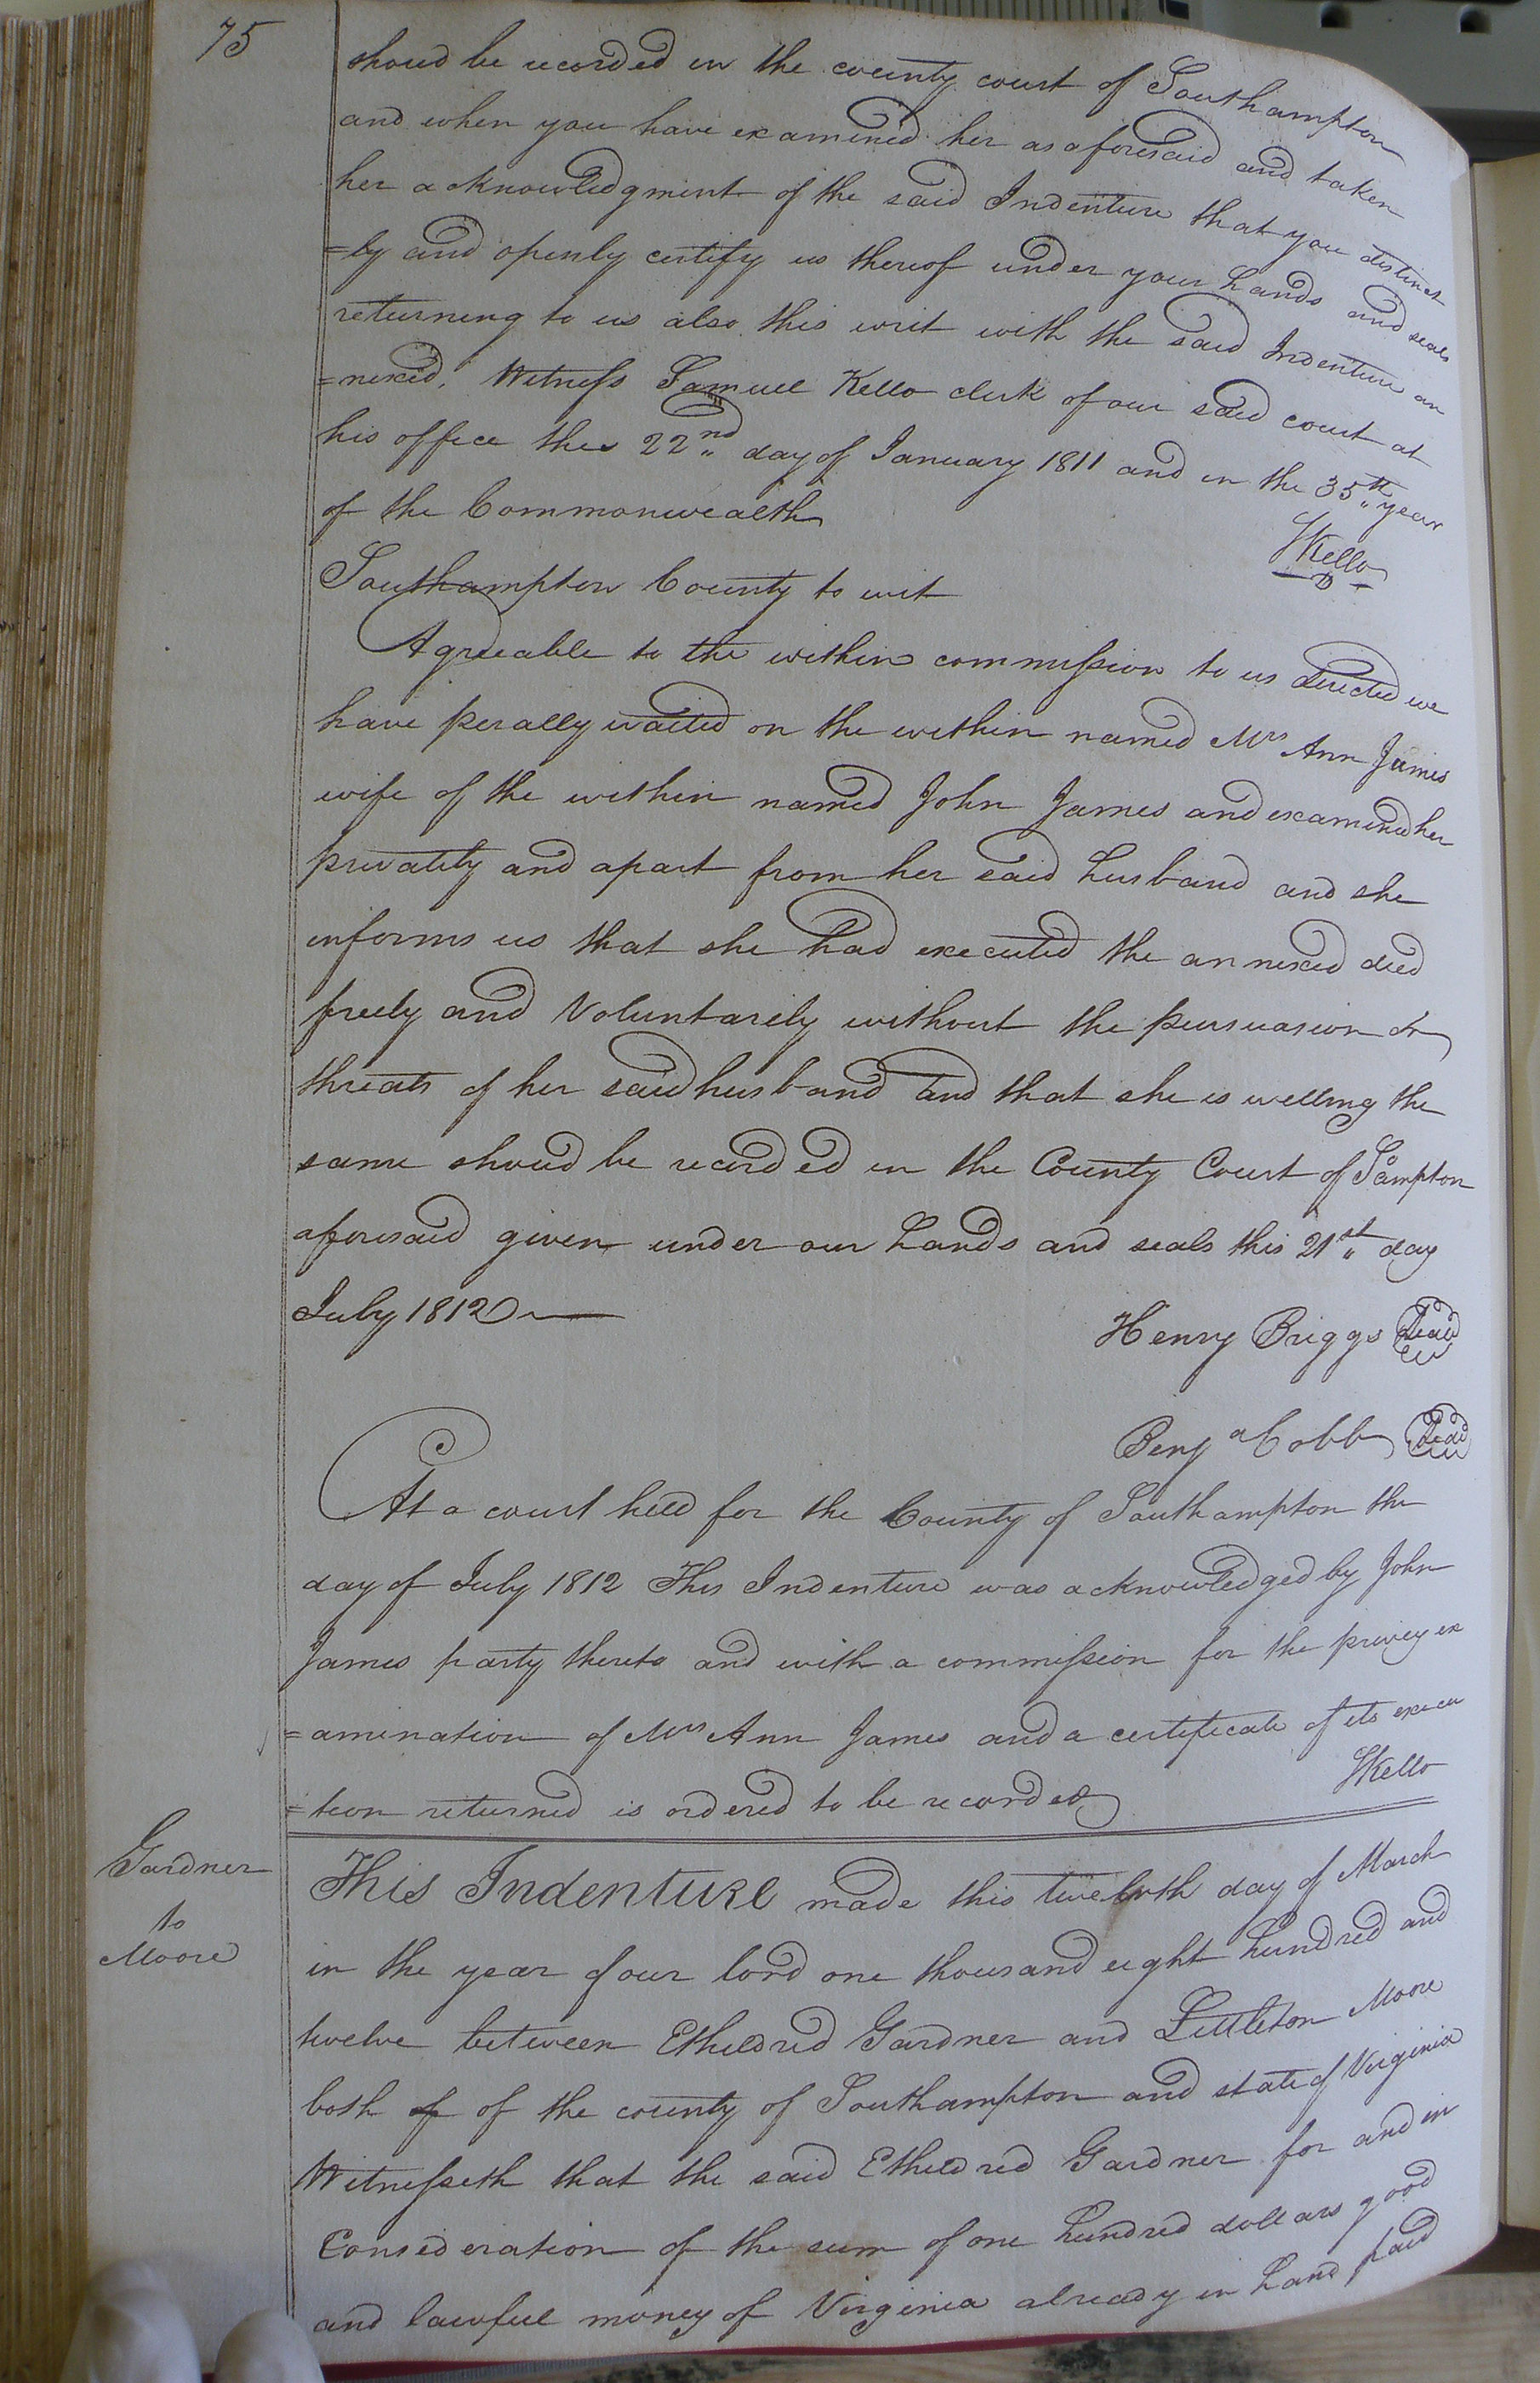 75
shoud be recorded in the county court of Southampton
and when you have examined her as aforesaid and taken
her acknowledgment of the said Indenture that you distinct
=ly and openly certify us thereof under your hands and seals
returning to us also this writ with the said Indenture an
=nexed. Witness Samuel Kello clerk of our said court at
his office this 22nd day of January 1811 and in the 35th year
of the Commonwealth
SKello
Southampton County to wit
Agreeable to the within commission to us directed we
have perally waited on the within named Mrs Ann James
wife of the within named John James and examined her
privately and apart from her said husband and she
informs us that she had executed the annexed deed
freely and Voluntarily without the persuasion or
threats of her said husband and that she is willing the
same shoud be recorded in the County Court of Sampton
aforesaid given under our hands and seals this 21st day
July 1812
Henry Briggs Seal
Benja Cobb Seal
At a court held for the County of Southampton the
day of July 1812 This Indenture was acknowledged by John
James party thereto and with a commission for the privey ex
=amination of Mrs Ann James and a certificate of its execu
=tion returned is ordered to be recorded
SKello
Gardner
to
Moore
This Indenture made this twelvth day of March
in the year of our lord one thousand eight hundred and
twelve between Etheldred Gardner and Littleton Moore
both of of the county of Southampton and state of Virginia
Witnesseth that the said Etheldred Gardner for and in
Consideration of the sum of one hundred dollars good
and lawful money of Virginia already in hand paid